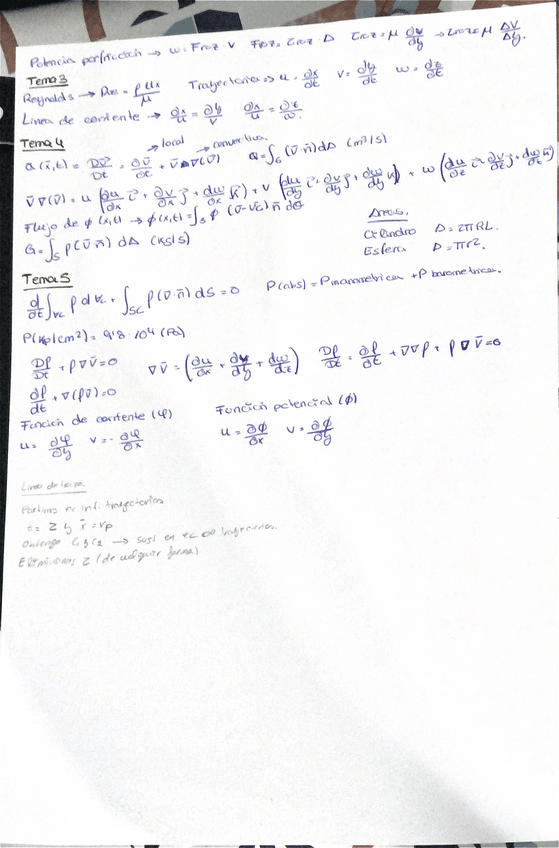 Potencia por fricción → w = Froz · V   Froz = τroz · A   τroz = μ ∂v/∂y → τroz = μ ΔV/Δy.
Tema 3
Reynolds → Re = ρ u x / μ   Trayectorias → u = ∂x/∂t   v = ∂y/∂t   w = ∂z/∂t
Linea de corriente → ∂x/u = ∂y/v   ∂x/u = ∂z/w.
Tema 4
→ local → convectiva
a(x̄,t) = Dv̄/Dt = ∂v̄/∂t + v̄ ∇(v̄)   Q = ∫s (v̄·n̄) dA (m³/s)
v̄ ∇(v̄) = u (du/∂x i + ∂v/∂x j + dw/∂x k) + v (du/dy i + ∂v/dy j + dw/dy k) + w (du/∂z i + ∂v/∂z j + dw/∂z k)
Flujo de φ (x,t) → φ(x,t) = ∫s φ (v̄ - v̄c) n̄ dσ
Areas.
G = ∫s ρ(v̄·n̄) dA (kg/s)
Cilindro A = 2πRL.
Esfera A = πr².
Tema 5
d/dt ∫vc ρ dvc + ∫sc ρ(v̄·n̄) dS = 0   P(abs) = P manometrica + P barometrica.
P(kp/cm²) = 9'8 · 10⁴ (Pa)
Dρ/Dt + ρ ∇v̄ = 0   ∇v̄ = (du/∂x + ∂v/∂y + dw/dz)   Dρ/Dt = ∂ρ/∂t + v̄ ∇ρ + ρ ∇v̄ = 0
∂ρ/dt + ∇(ρv̄) = 0
Función de corriente (φ)   Función potencial (ϕ)
u = ∂φ/∂y   v = - ∂φ/∂x   u = ∂ϕ/∂x   v = ∂ϕ/∂y
Linea de traza
Partimos de inf. trayectorias
t = z y r̄ = rp
Obtengo C₁ y C₂ → sust en ec trayectorias.
Eliminamos z (de cualquier forma)